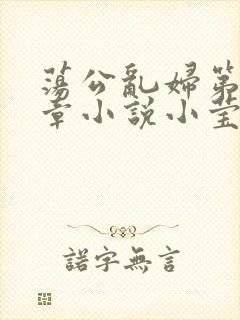 蕩公亂婦第
章小說小莹
諾字無言